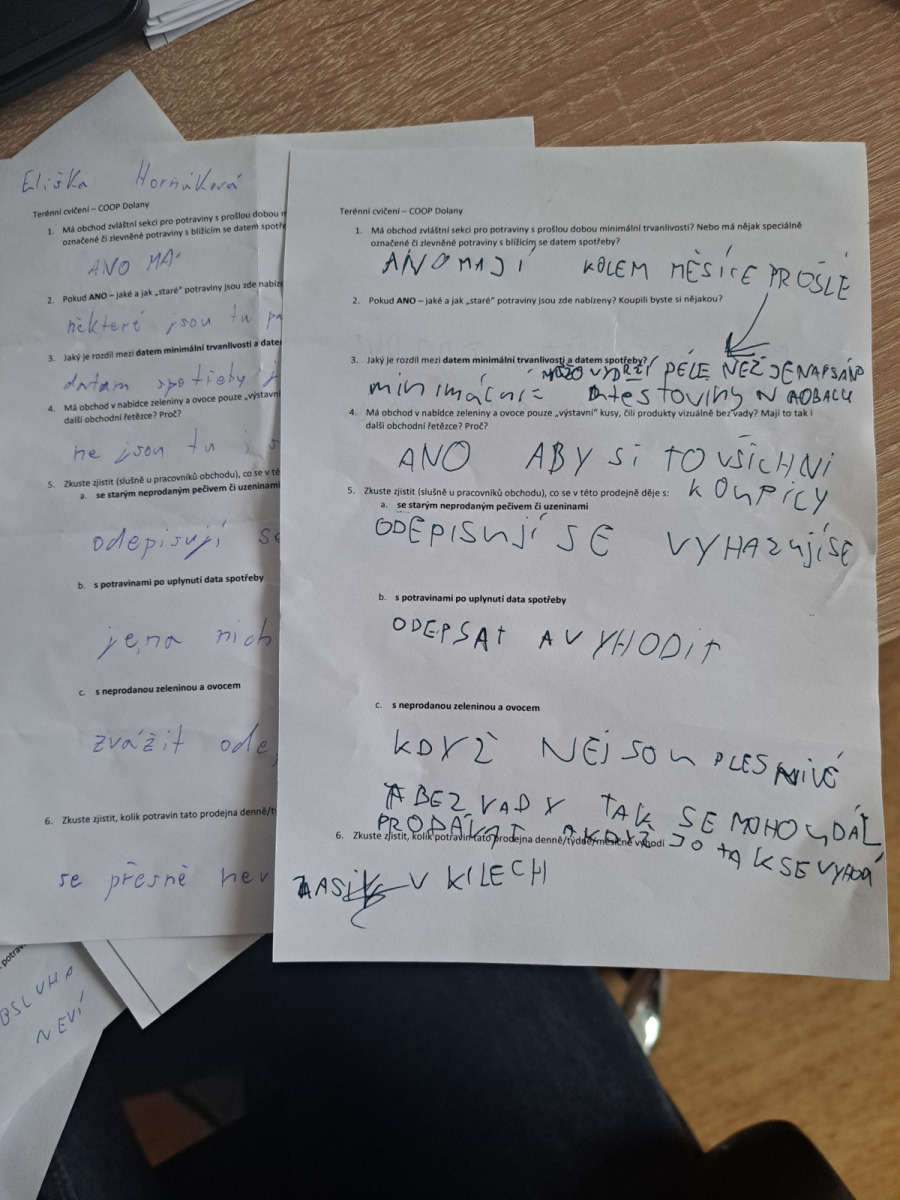 Eliška Hornáková
Terénní cvičení – COOP Dolany
1. Má obchod zvláštní sekci pro potraviny s prošlou dobou
označené či zlevněné potraviny s blížícím se datem spotře
ANO MÁ
2. Pokud ANO – jaké a jak „staré“ potraviny jsou zde nabíze
některé jsou tu
3. Jaký je rozdíl mezi datem minimální trvanlivosti a date
datam spotřeby
4. Má obchod v nabídce zeleniny a ovoce pouze „výstavní
další obchodní řetězce? Proč?
ne jsou tu
5. Zkuste zjistit (slušně u pracovníků obchodu), co se v té
a. se starým neprodaným pečivem či uzeninami
odepisují se
b. s potravinami po uplynutí data spotřeby
nich
c. s neprodanou zeleninou a ovocem
zvážit ode
6. Zkuste zjistit, kolik potravin tato prodejna denně/tý
se přesně nev
OBSLUHA
NEVÍ
Terénní cvičení – COOP Dolany
1. Má obchod zvláštní sekci pro potraviny s prošlou dobou minimální trvanlivosti? Nebo má nějak speciálně
označené či zlevněné potraviny s blížícím se datem spotřeby?
ANO MAJÍ KOLEM MĚSÍCE PROŠLÉ
2. Pokud ANO – jaké a jak „staré“ potraviny jsou zde nabízeny? Koupili byste si nějakou?
3. Jaký je rozdíl mezi datem minimální trvanlivosti a datem spotřeby?
VYDRŽÍ PÉLE NEŽ JE NAPSÁNO
NA OBALU
4. Má obchod v nabídce zeleniny a ovoce pouze „výstavní“ kusy, čili produkty vizuálně bez vady? Mají to tak i
další obchodní řetězce? Proč?
ANO ABY SI TO VŠICHNI
KOUPILY
5. Zkuste zjistit (slušně u pracovníků obchodu), co se v této prodejně děje s:
a. se starým neprodaným pečivem či uzeninami
ODEPISUJÍ SE VYHAZUJÍ SE
b. s potravinami po uplynutí data spotřeby
ODEPSAT A VYHODIT
c. s neprodanou zeleninou a ovocem
KDYŽ NEJSOU PLESNIVÉ
A BEZ VADY TAK SE MOHOU DÁL
PRODÁVAT A KDYŽ JO TAK SE VYHODÍ
6. Zkuste zjistit, kolik potravin tato prodejna denně/týdně/měsíčně vyhodí
V KILECH